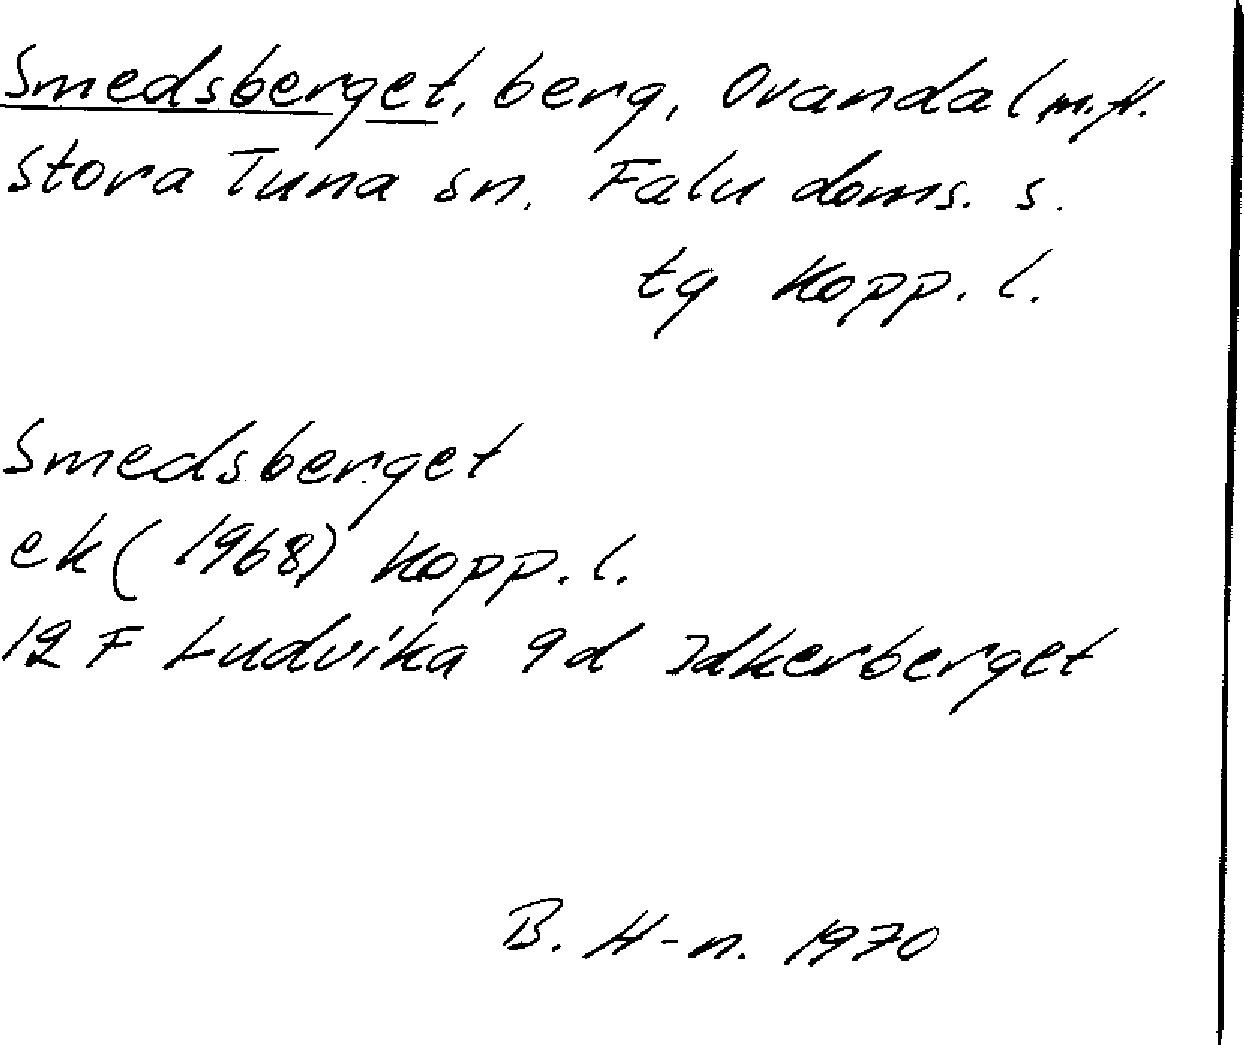 Smedsberget, berg, Ovandal m.fl.
Stora Tuna sn. Falu doms. s.
tg Kopp. l.
Smedsberget
ek (1968) Kopp. l.
12 F Ludvika 9d Idkerberget
B. H-n. 1970